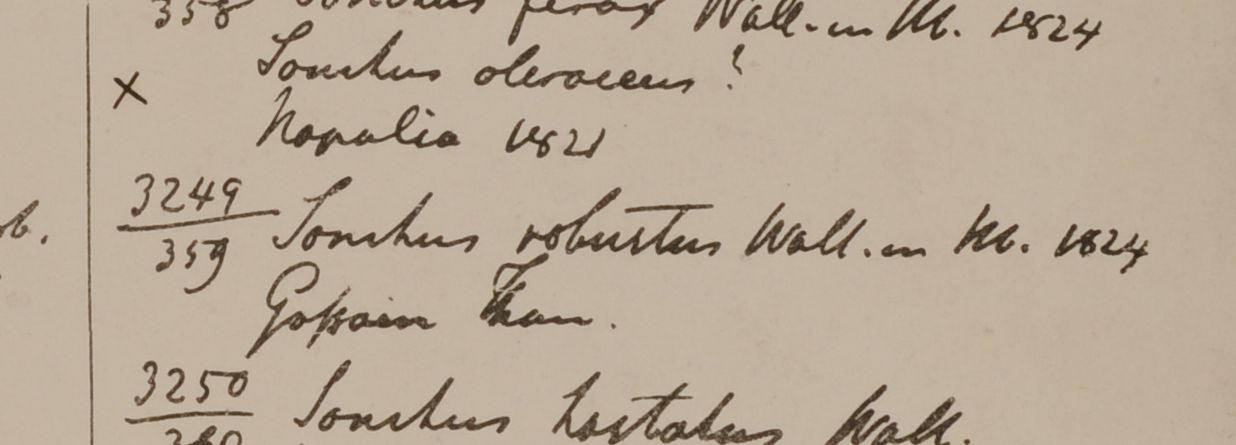 358 Sonchus ferox Wall. in M. 1824
Sonchus oleraceus?
× Napalia 1821
3249
359 Sonchus robustus Wall. in M. 1824
b.
Gossain Than.
3250
360 Sonchus hastatus Wall.